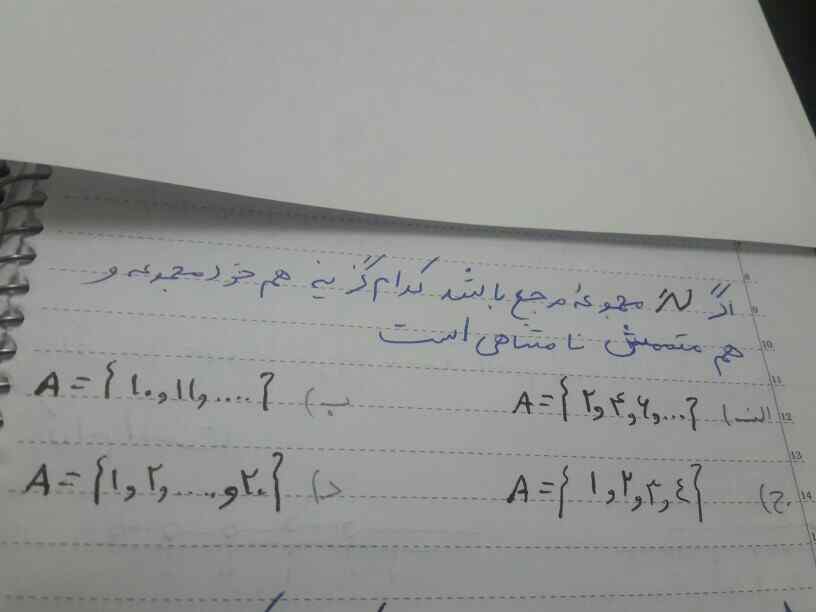 اگر N مجموعهٔ مرجع باشد کدام گزینه هم خود مجموعه و
هم متممش نامتناهی است
الف) A = {۲, ۴, ۶, ...} ب) A = {۱۰, ۱۱, ....}
ج) A = {۱, ۲, ۳, ٤} د) A = {۱, ۲, ..., ۲۰}